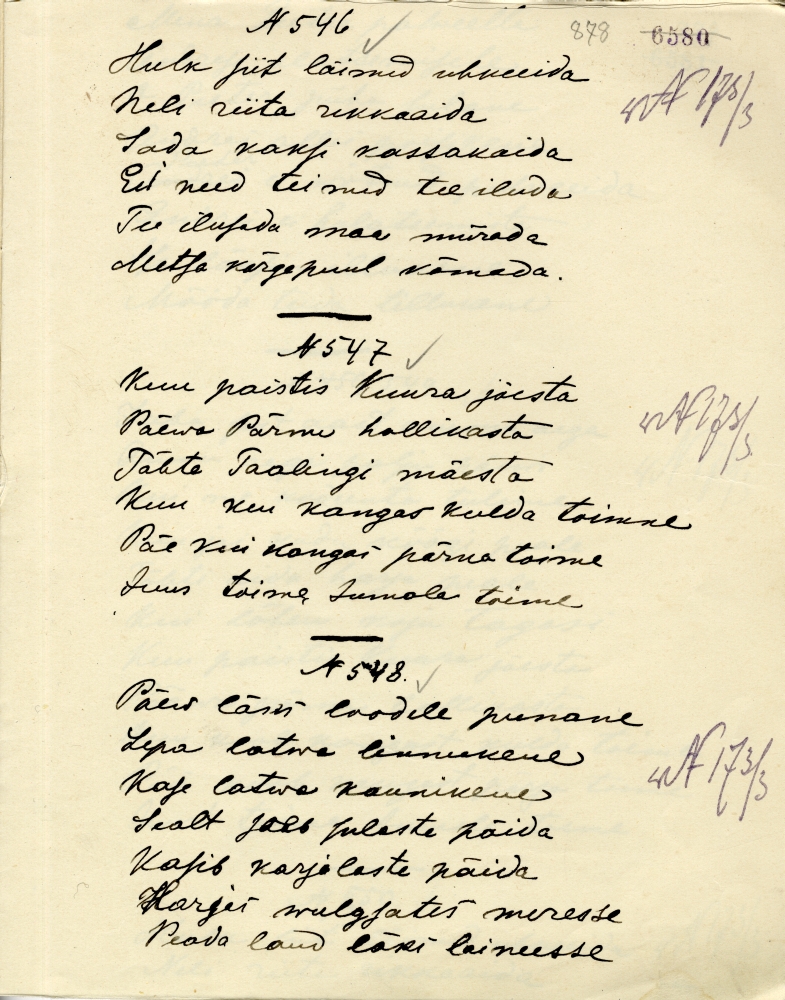 N 546
878 6580
Hulk siit läinud uhkeeida
Neli riita rikkaaida
Sada kaksi kassakaida
Ei need teinud tee iluda
Tee ilusada maa mürada
Metsa kõrgepuul kõmada.
N 547
Kuu paistis Kuura jõesta
Päewa Pärnu hallikasta
Tähte Taalingi mäesta
Kuu kui kangas kulda toimne
Päe kui kangas pärna toime
Suus toime, Jumala toime
N 548.
Päew läks loodele punane
Lepa latwa linnukene
Kase latwa kaunikene
Sealt sääb sulaste päida
Kasib karjalaste päida
Harjas wulgsatas meresse
Peada laud läks laineesse